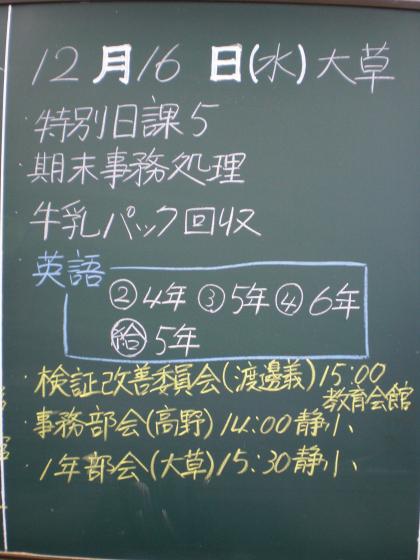 12月16日(水)大草
・特別日課5
・期末事務処理
・牛乳パック回収
英語
②4年 ③5年 ④6年
㊡5年
・検証改善委員会(渡邊義)15:00
教育会館
・事務部会(高野)14:00静小
・1年部会(大草)15:30静小